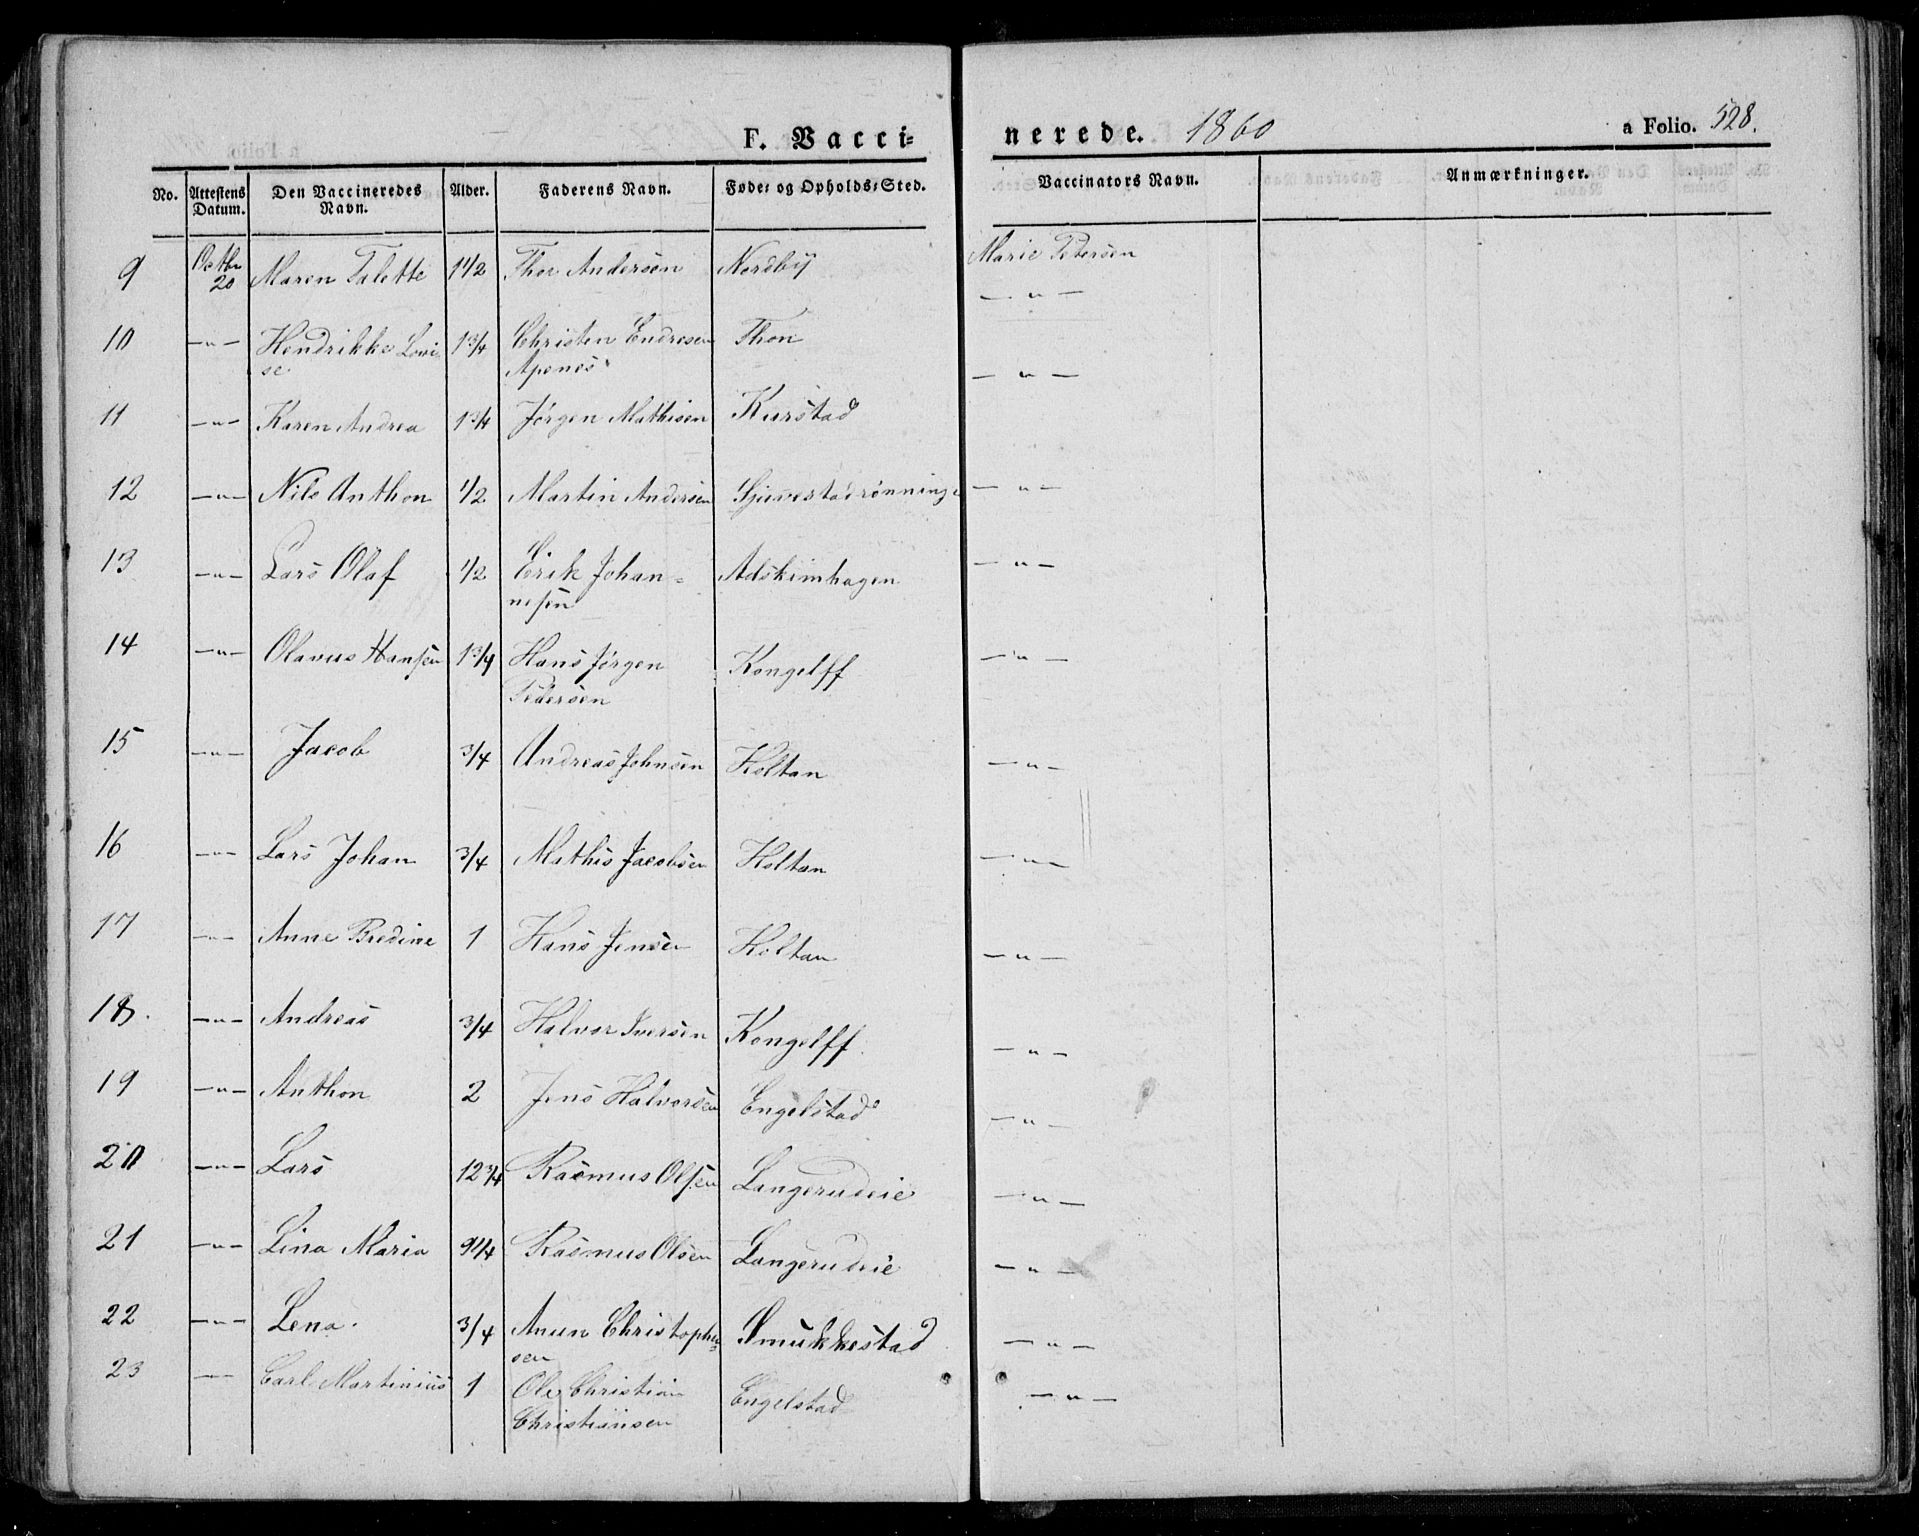 F. Vacci= nerede. 1860 a Folio. 528.
No. Attestens Datum. Den Vaccineredes Navn. Alder. Faderens Navn. Føde= og Opholds=Sted. Vaccinators Navn. Anmærkninger.
9 Octbr 20 Maren Talette 1 1/2 Thor Andersen Nordby Marie Petersen
—„—
10 —„— Hendrikke Loui 1 3/4 Christen Endresen Thon
se Apenes —„—
11 —„— Karen Andrea 1 3/4 Jørgen Mathisen Kurstad
12 —„— Nils Anthon 1/2 Martin Andersen Sjuvestadrønninge —„—
13 —„— Lars Olaf 1/2 Erik Johan= Adskimhagen —„—
nesen
14 —„— Olavus Hansen 1 3/4 Hans Jørgen Kongelff —„—
Pedersen
15 —„— Jacob 3/4 Andreas Johnsen Holtan —„—
16 —„— Lars Johan 3/4 Mathis Jacobsen Holtan —„—
17 —„— Anne Bredine 1 Hans Jensen Holtan —„—
18. —„— Andreas 3/4 Halvor Iversen Kongelff. —„—
19 —„— Anthon 2 Jens Halvorsen Engelstad —„—
20 —„— Lars 12 3/4 Rasmus Olsen Langerudeie —„—
21 —„— Lina Maria 9 1/4 Rasmus Olsen Langerudeie —„—
22 —„— Lena. 3/4 Anun Christopher= Smukkestad —„—
sen
23 —„— Carl Martinius 1 Ole Christian Engelstad —„—
Christiansen